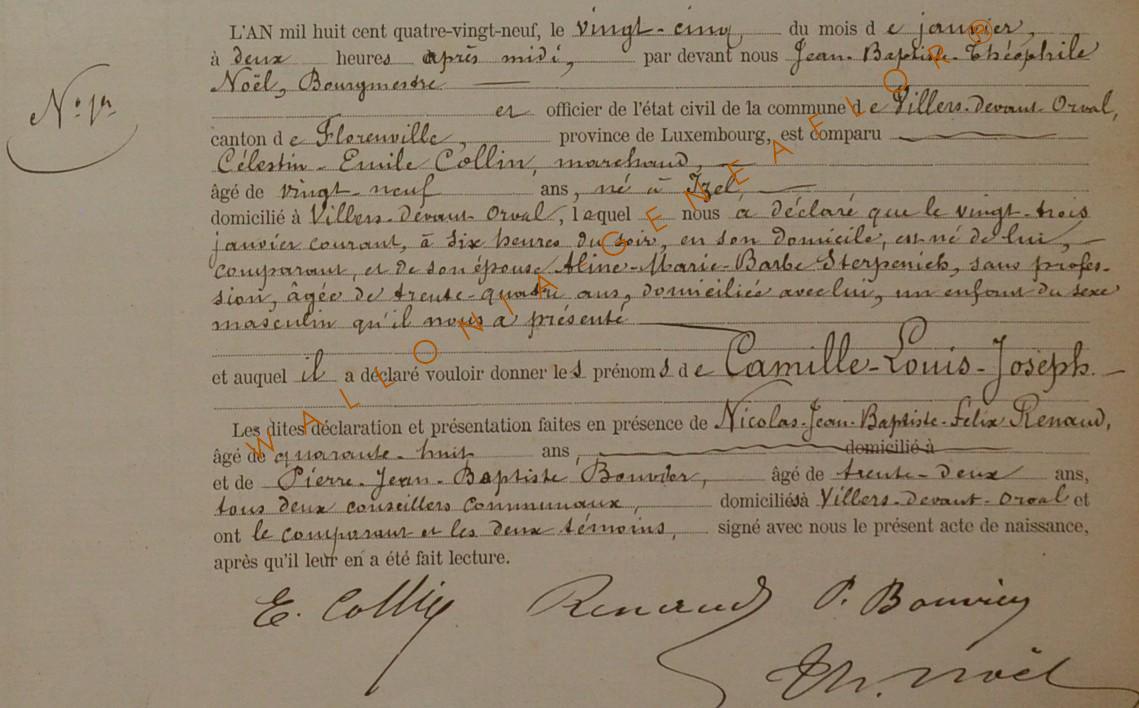 L'AN mil huit cent quatre-vingt-neuf, le vingt-cinq, du mois de janvier,
à deux heures après midi, par devant nous Jean-Baptiste-Théophile
Noël, Bourgmestre
N° 1er
et officier de l'état civil de la commune de Villers-devant-Orval,
canton de Florenville, province de Luxembourg, est comparu
Célestin-Emile Collin, marchand,
âgé de vingt-neuf ans, né à Izel,
domicilié à Villers-devant-Orval, lequel nous a déclaré que le vingt-trois
janvier courant, à six heures du soir, en son domicile, est né de lui,
comparant, et de son épouse Aline-Marie-Barbe Sterpenich, sans profes-
sion, âgée de trente-quatre ans, domiciliée avec lui, un enfant du sexe
masculin qu'il nous a présenté
et auquel il a déclaré vouloir donner les prénoms de Camille-Louis-Joseph.
Les dites déclaration et présentation faites en présence de Nicolas-Jean-Baptiste-Felix Renaud,
âgé de quarante-huit ans, domicilié à
et de Pierre-Jean-Baptiste Bouvier, âgé de trente-deux ans,
tous deux conseillers communaux, domiciliés à Villers-devant-Orval et
ont le comparant et les deux témoins, signé avec nous le présent acte de naissance,
après qu'il leur en a été fait lecture.
E. Collin Renaud P. Bouvier
Th. Noël
WALLONIA GENEALOR®